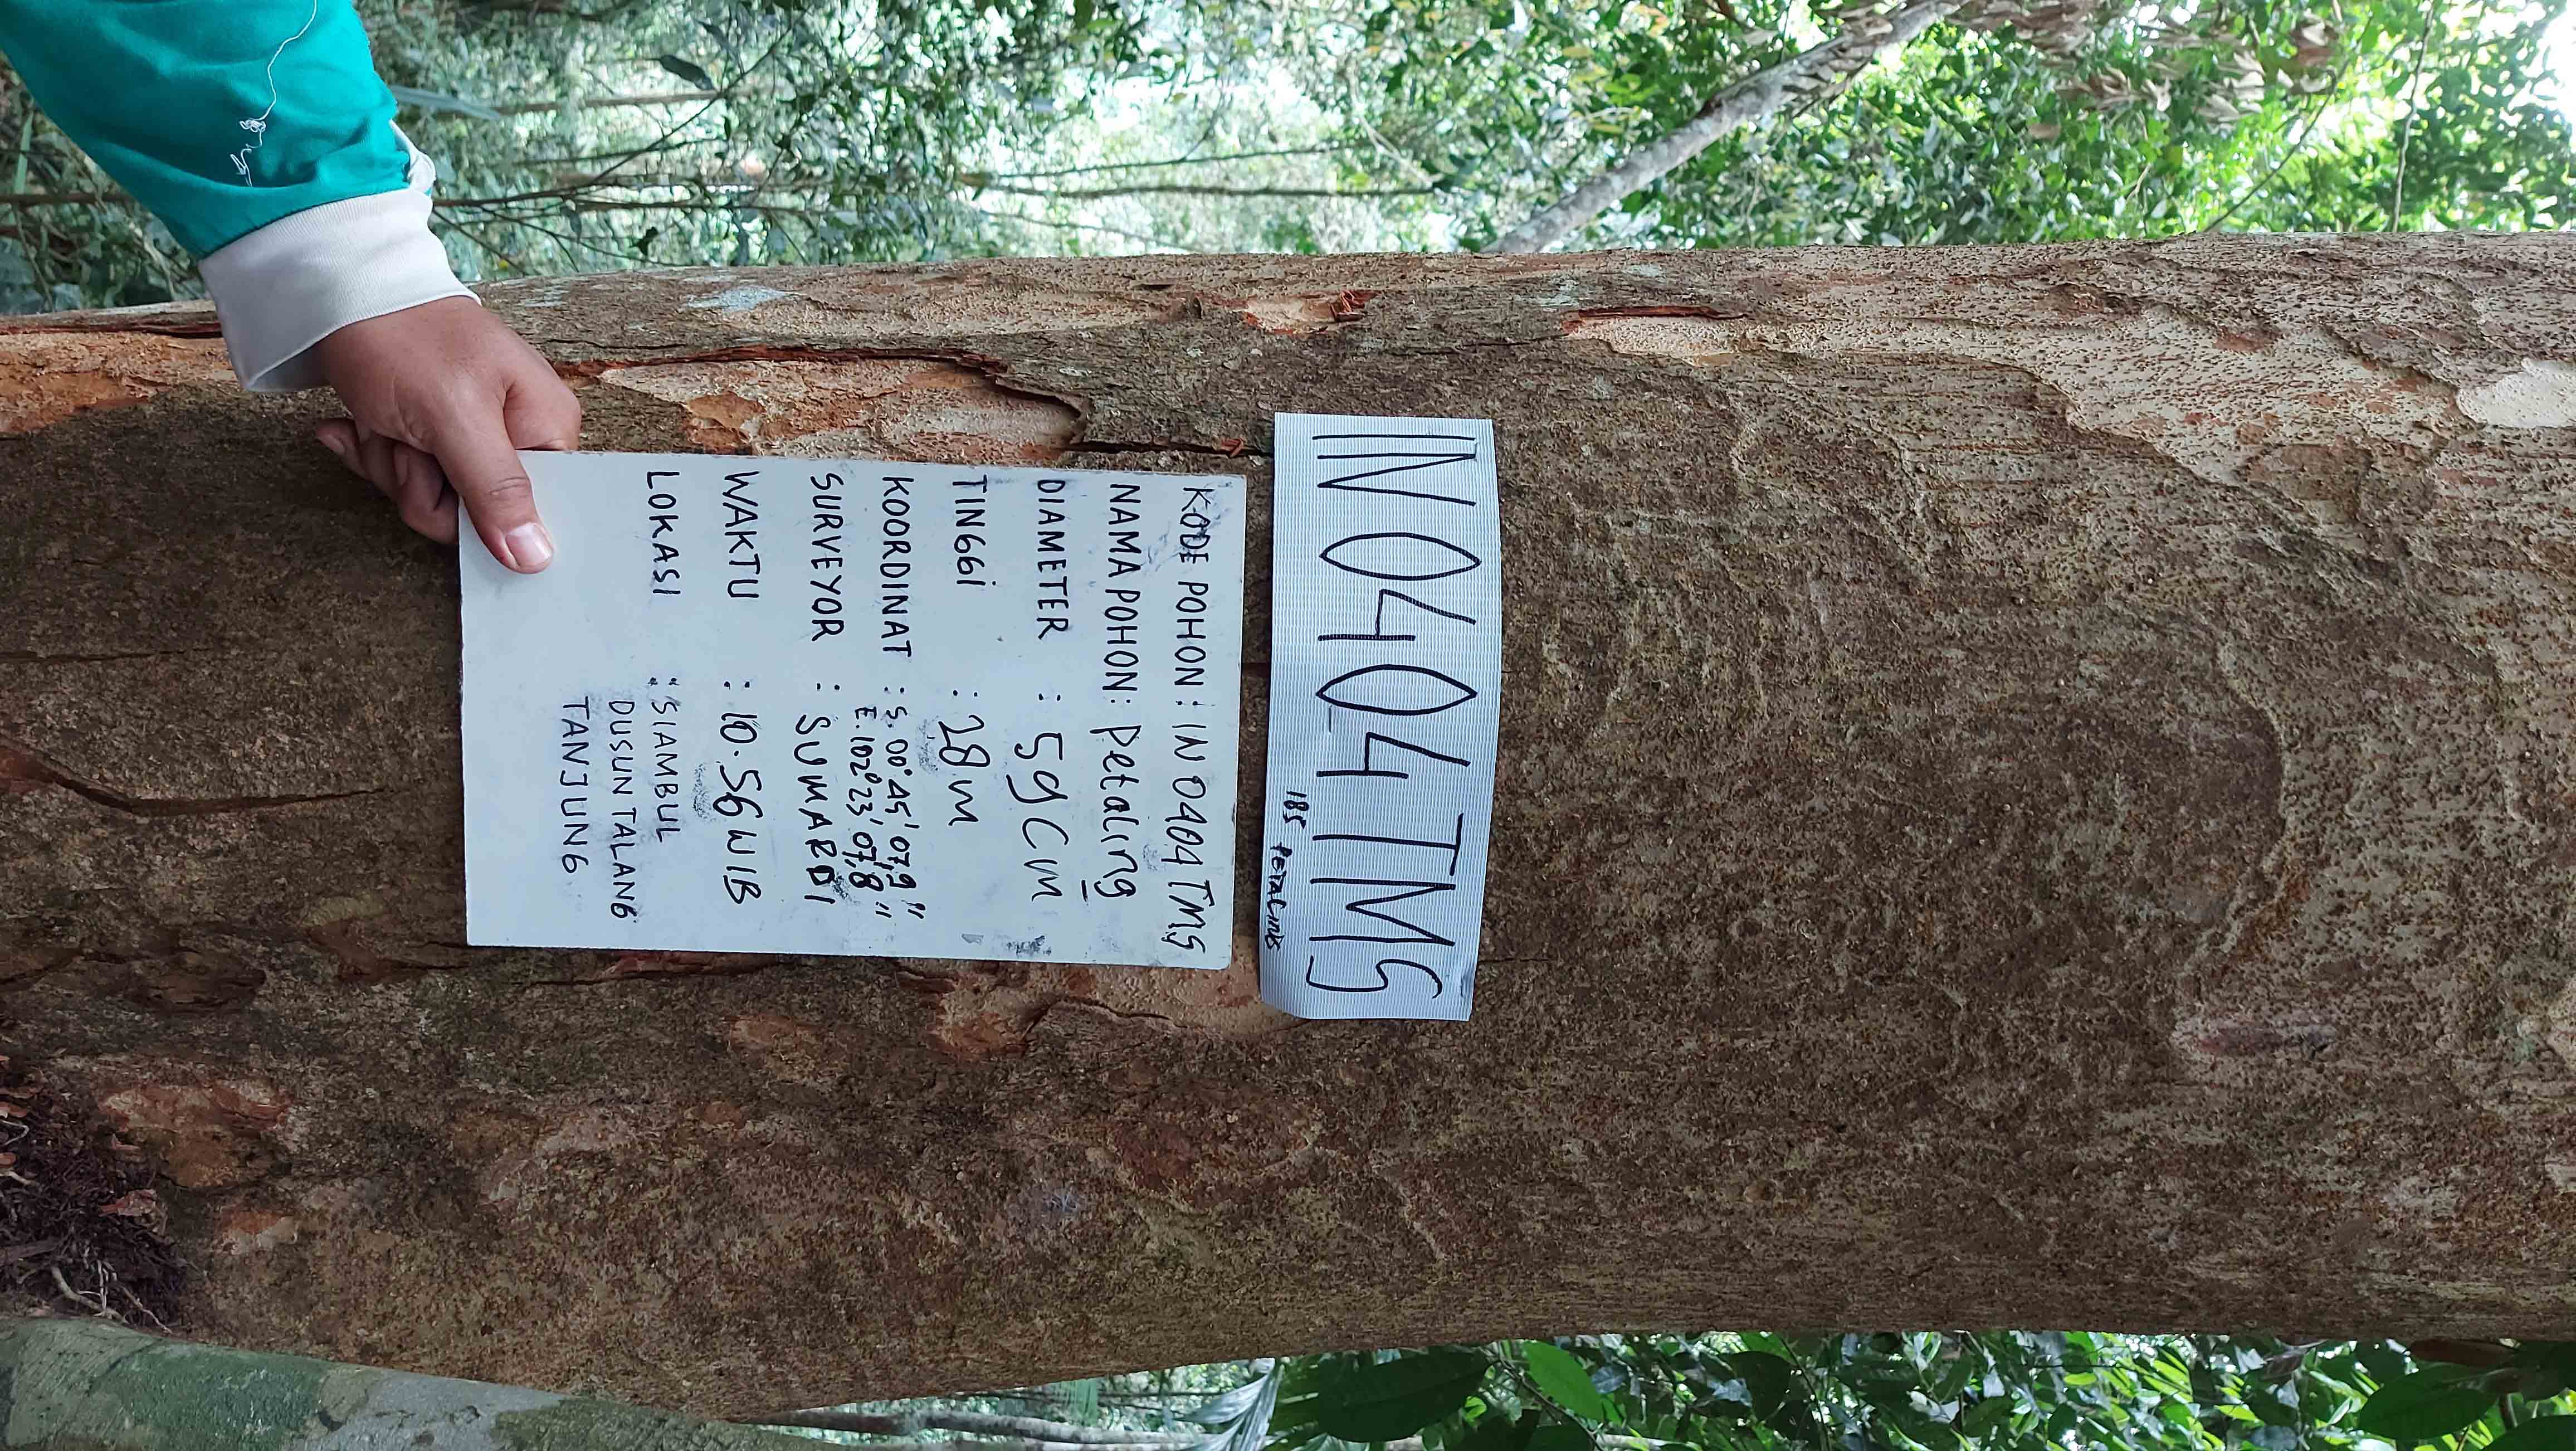 IN 0404 TMS
185 PETALING
KODE POHON : IN 0404 TMS
NAMA POHON : Petaling
DIAMETER : 59 Cm
TINGGi : 28 m
KOORDINAT : S. 00° 45' 07,9"
E. 102° 23' 07,8"
SURVEYOR : SUMARDI
WAKTU : 10.56 WIB
LOKASI : SIAMBUL
DUSUN TALANG
TANJUNG